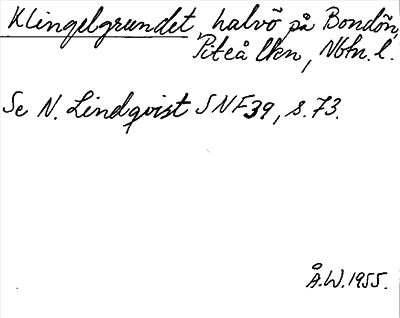 Klingelgrundet, halvö på Bondön,
Piteå lkn, Nbtn. l.
Se N. Lindqvist SNF 39, s. 73.
Å.W. 1955.